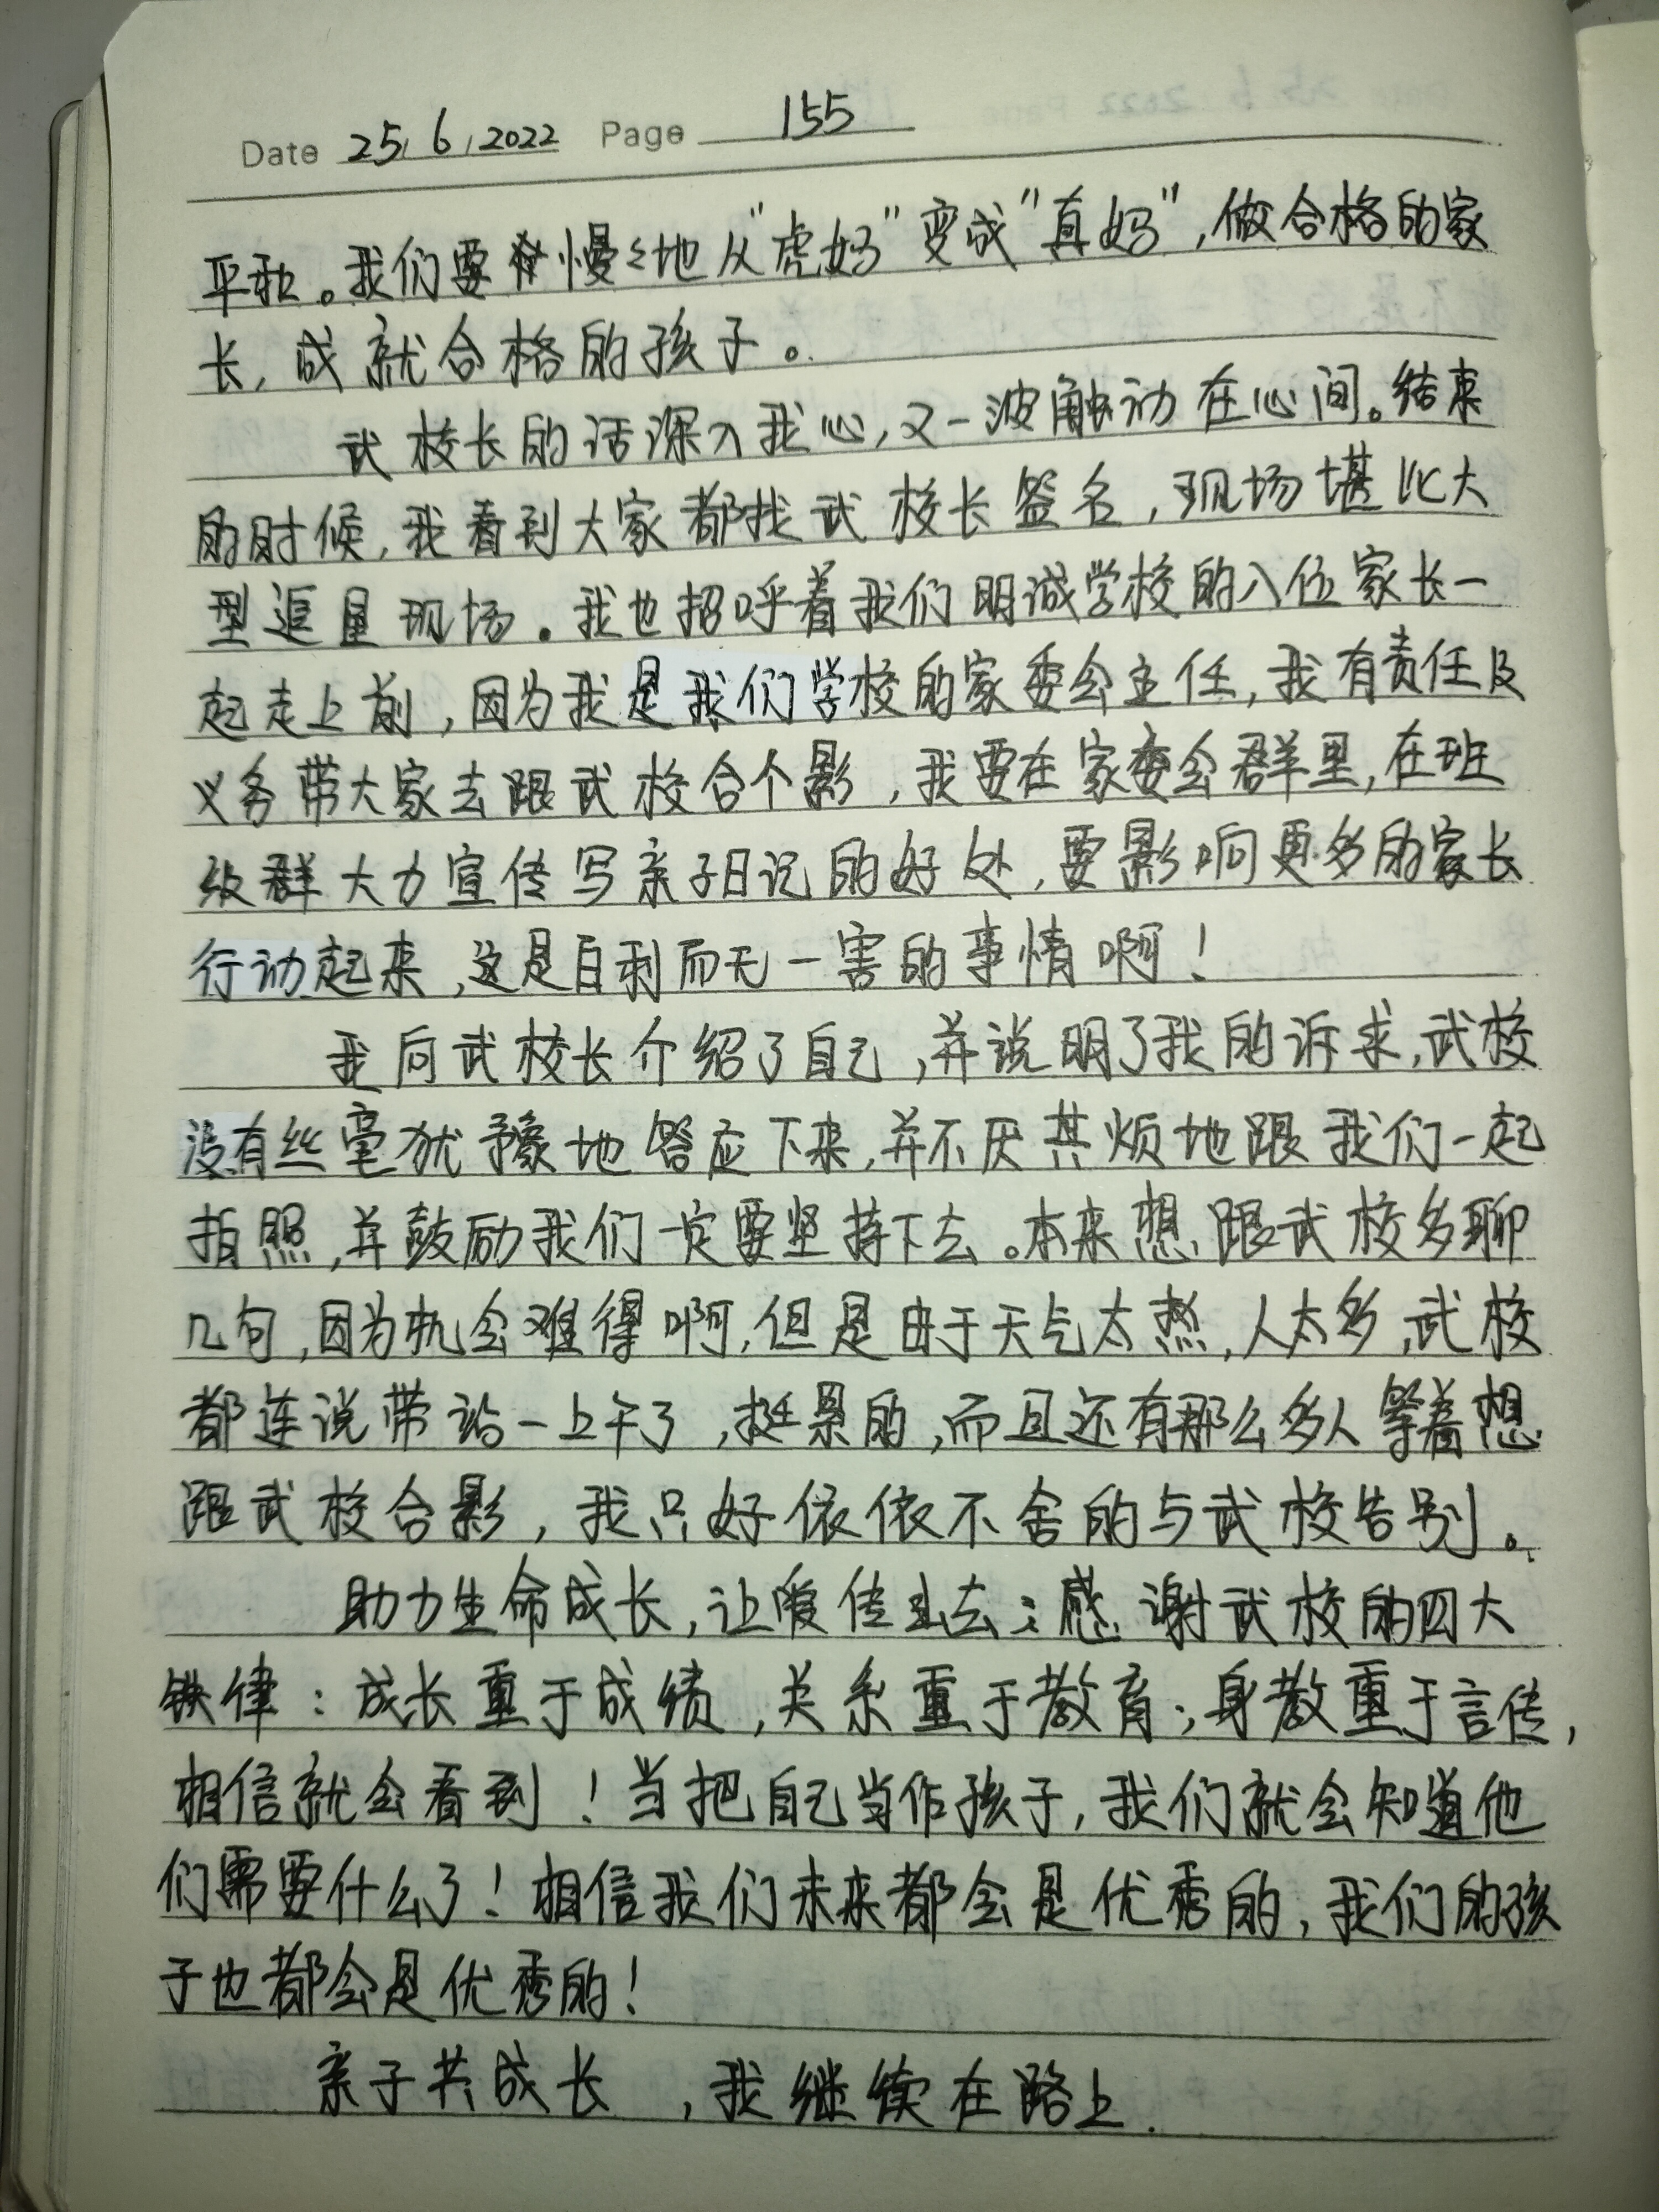 Date 25, 6, 2022 Page 155
平和。我们要慢慢地从"虎妈"变成"真妈",做合格的家
长,成就合格的孩子。
武校长的话深入我心,又一波触动在心间。结束
的时候,我看到大家都找武校长签名,现场堪比大
型追星现场。我也招呼着我们明诚学校的八位家长一
起走上前,因为我是我们学校的家委会主任,我有责任及
义务带大家去跟武校合个影,我要在家委会群里,在班
级群大力宣传写亲子日记的好处,要影响更多的家长
行动起来,这是百利而无一害的事情啊!
我向武校长介绍了自己,并说明了我的诉求,武校
没有丝毫犹豫地答应下来,并不厌其烦地跟我们一起
拍照,并鼓励我们一定要坚持下去。本来想跟武校多聊
几句,因为机会难得啊,但是由于天气太热,人太多,武校
都连说带站一上午了,挺累的,而且还有那么多人等着想
跟武校合影,我只好依依不舍的与武校告别。
助力生命成长,让爱传出去;感谢武校的四大
铁律:成长重于成绩,关系重于教育;身教重于言传,
相信就会看到!当把自己当作孩子,我们就会知道他
们需要什么了!相信我们未来都会是优秀的,我们的孩
子也都会是优秀的!
亲子共成长,我继续在路上.